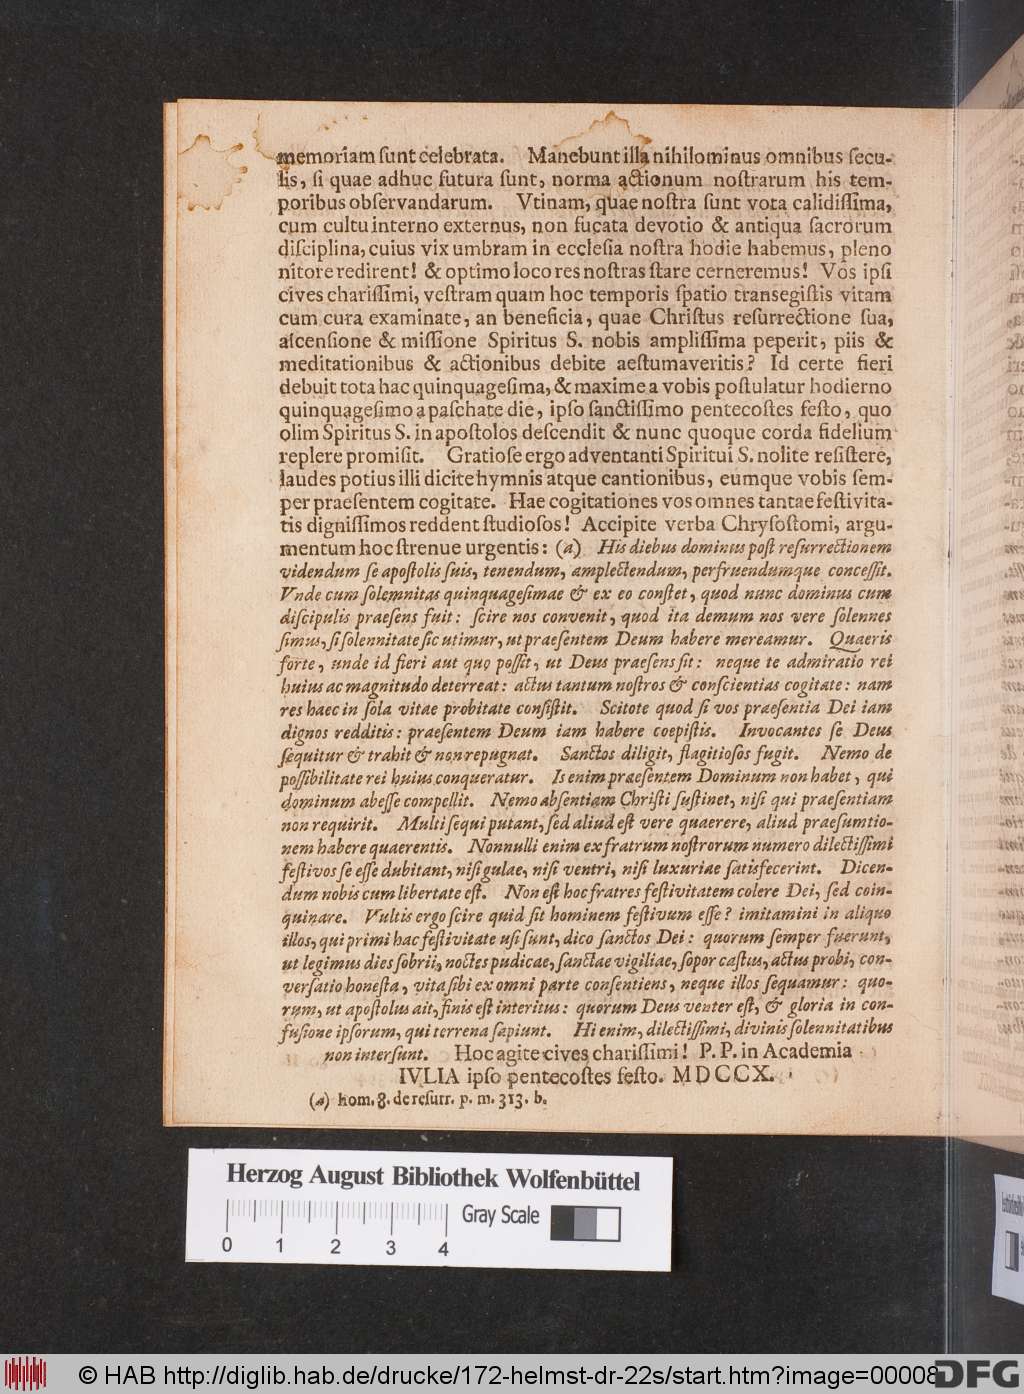 memoriam ſunt celebrata. Manebunt illa nihilominus omnibus ſecu-
lis, ſi quae adhuc futura ſunt, norma actionum noſtrarum his tem-
poribus obſervandarum. Vtinam, quae noſtra ſunt vota calidiſſima,
cum cultu interno externus, non fucata devotio & antiqua ſacrorum
diſciplina, cuius vix umbram in eccleſia noſtra hodie habemus, pleno
nitore redirent! & optimo loco res noſtras ſtare cerneremus! Vos ipſi
cives chariſſimi, veſtram quam hoc temporis ſpatio transegiſtis vitam
cum cura examinate, an beneficia, quae Chriſtus reſurrectione ſua,
aſcenſione & miſſione Spiritus S. nobis ampliſſima peperit, piis &
meditationibus & actionibus debite aeſtumaveritis? Id certe fieri
debuit tota hac quinquageſima, & maxime a vobis poſtulatur hodierno
quinquageſimo a paſchate die, ipſo ſanctiſſimo pentecoſtes feſto, quo
olim Spiritus S. in apoſtolos deſcendit & nunc quoque corda fidelium
replere promiſit. Gratioſe ergo adventanti Spiritui S. nolite reſiſtere,
laudes potius illi dicite hymnis atque cantionibus, eumque vobis ſem-
per praeſentem cogitate. Hae cogitationes vos omnes tantae feſtivita-
tis digniſſimos reddent ſtudioſos! Accipite verba Chryſoſtomi, argu-
mentum hoc ſtrenue urgentis: (a) His diebus dominus poſt reſurrectionem
videndum ſe apoſtolis ſuis, tenendum, amplectendum, perfruendumque conceſſit.
Vnde cum ſolemnitas quinquageſimae & ex eo conſtet, quod nunc dominus cum
diſcipulis praeſens fuit: ſcire nos convenit, quod ita demum nos vere ſolennes
ſimus, ſi ſolennitate ſic utimur, ut praeſentem Deum habere mereamur. Quaeris
forte, unde id fieri aut quo poſſit, ut Deus praeſens ſit: neque te admiratio rei
huius ac magnitudo deterreat: actus tantum noſtros & conſcientias cogitate: nam
res haec in ſola vitae probitate conſiſtit. Scitote quod ſi vos praeſentia Dei iam
dignos redditis: praeſentem Deum iam habere coepiſtis. Invocantes ſe Deus
ſequitur & trahit & non repugnat. Sanctos diligit, flagitioſos fugit. Nemo de
poſſibilitate rei huius conqueratur. Is enim praeſentem Dominum non habet, qui
dominum abeſſe compellit. Nemo abſentiam Chriſti ſuſtinet, niſi qui praeſentiam
non requirit. Multi ſequi putant, ſed aliud eſt vere quaerere, aliud praeſumtio-
nem habere quaerentis. Nonnulli enim ex fratrum noſtrorum numero dilectiſſimi
feſtivos ſe eſſe dubitant, niſi gulae, niſi ventri, niſi luxuriae ſatisfecerint. Dicen-
dum nobis cum libertate eſt. Non eſt hoc fratres feſtivitatem colere Dei, ſed coin-
quinare. Vultis ergo ſcire quid ſit hominem feſtivum eſſe? imitamini in aliquo
illos, qui primi hac feſtivitate uſi ſunt, dico ſanctos Dei: quorum ſemper fuerunt,
ut legimus dies ſobrii, noctes pudicae, ſanctae vigiliae, ſopor caſtus, actus probi, con-
verſatio honeſta, vita ſibi ex omni parte conſentiens, neque illos ſequamur: quo-
rum, ut apoſtolus ait, finis eſt interitus: quorum Deus venter eſt, & gloria in con-
fuſione ipſorum, qui terrena ſapiunt. Hi enim, dilectiſſimi, divinis ſolennitatibus
non interſunt. Hoc agite cives chariſſimi! P. P. in Academia
IVLIA ipſo pentecoſtes feſto. MDCCX.
(a) hom. 8. de reſurr. p. m. 313. b.
Herzog August Bibliothek Wolfenbüttel
Gray Scale
0 1 2 3 4
© HAB http://diglib.hab.de/drucke/172-helmst-dr-22s/start.htm?image=00008
DFG